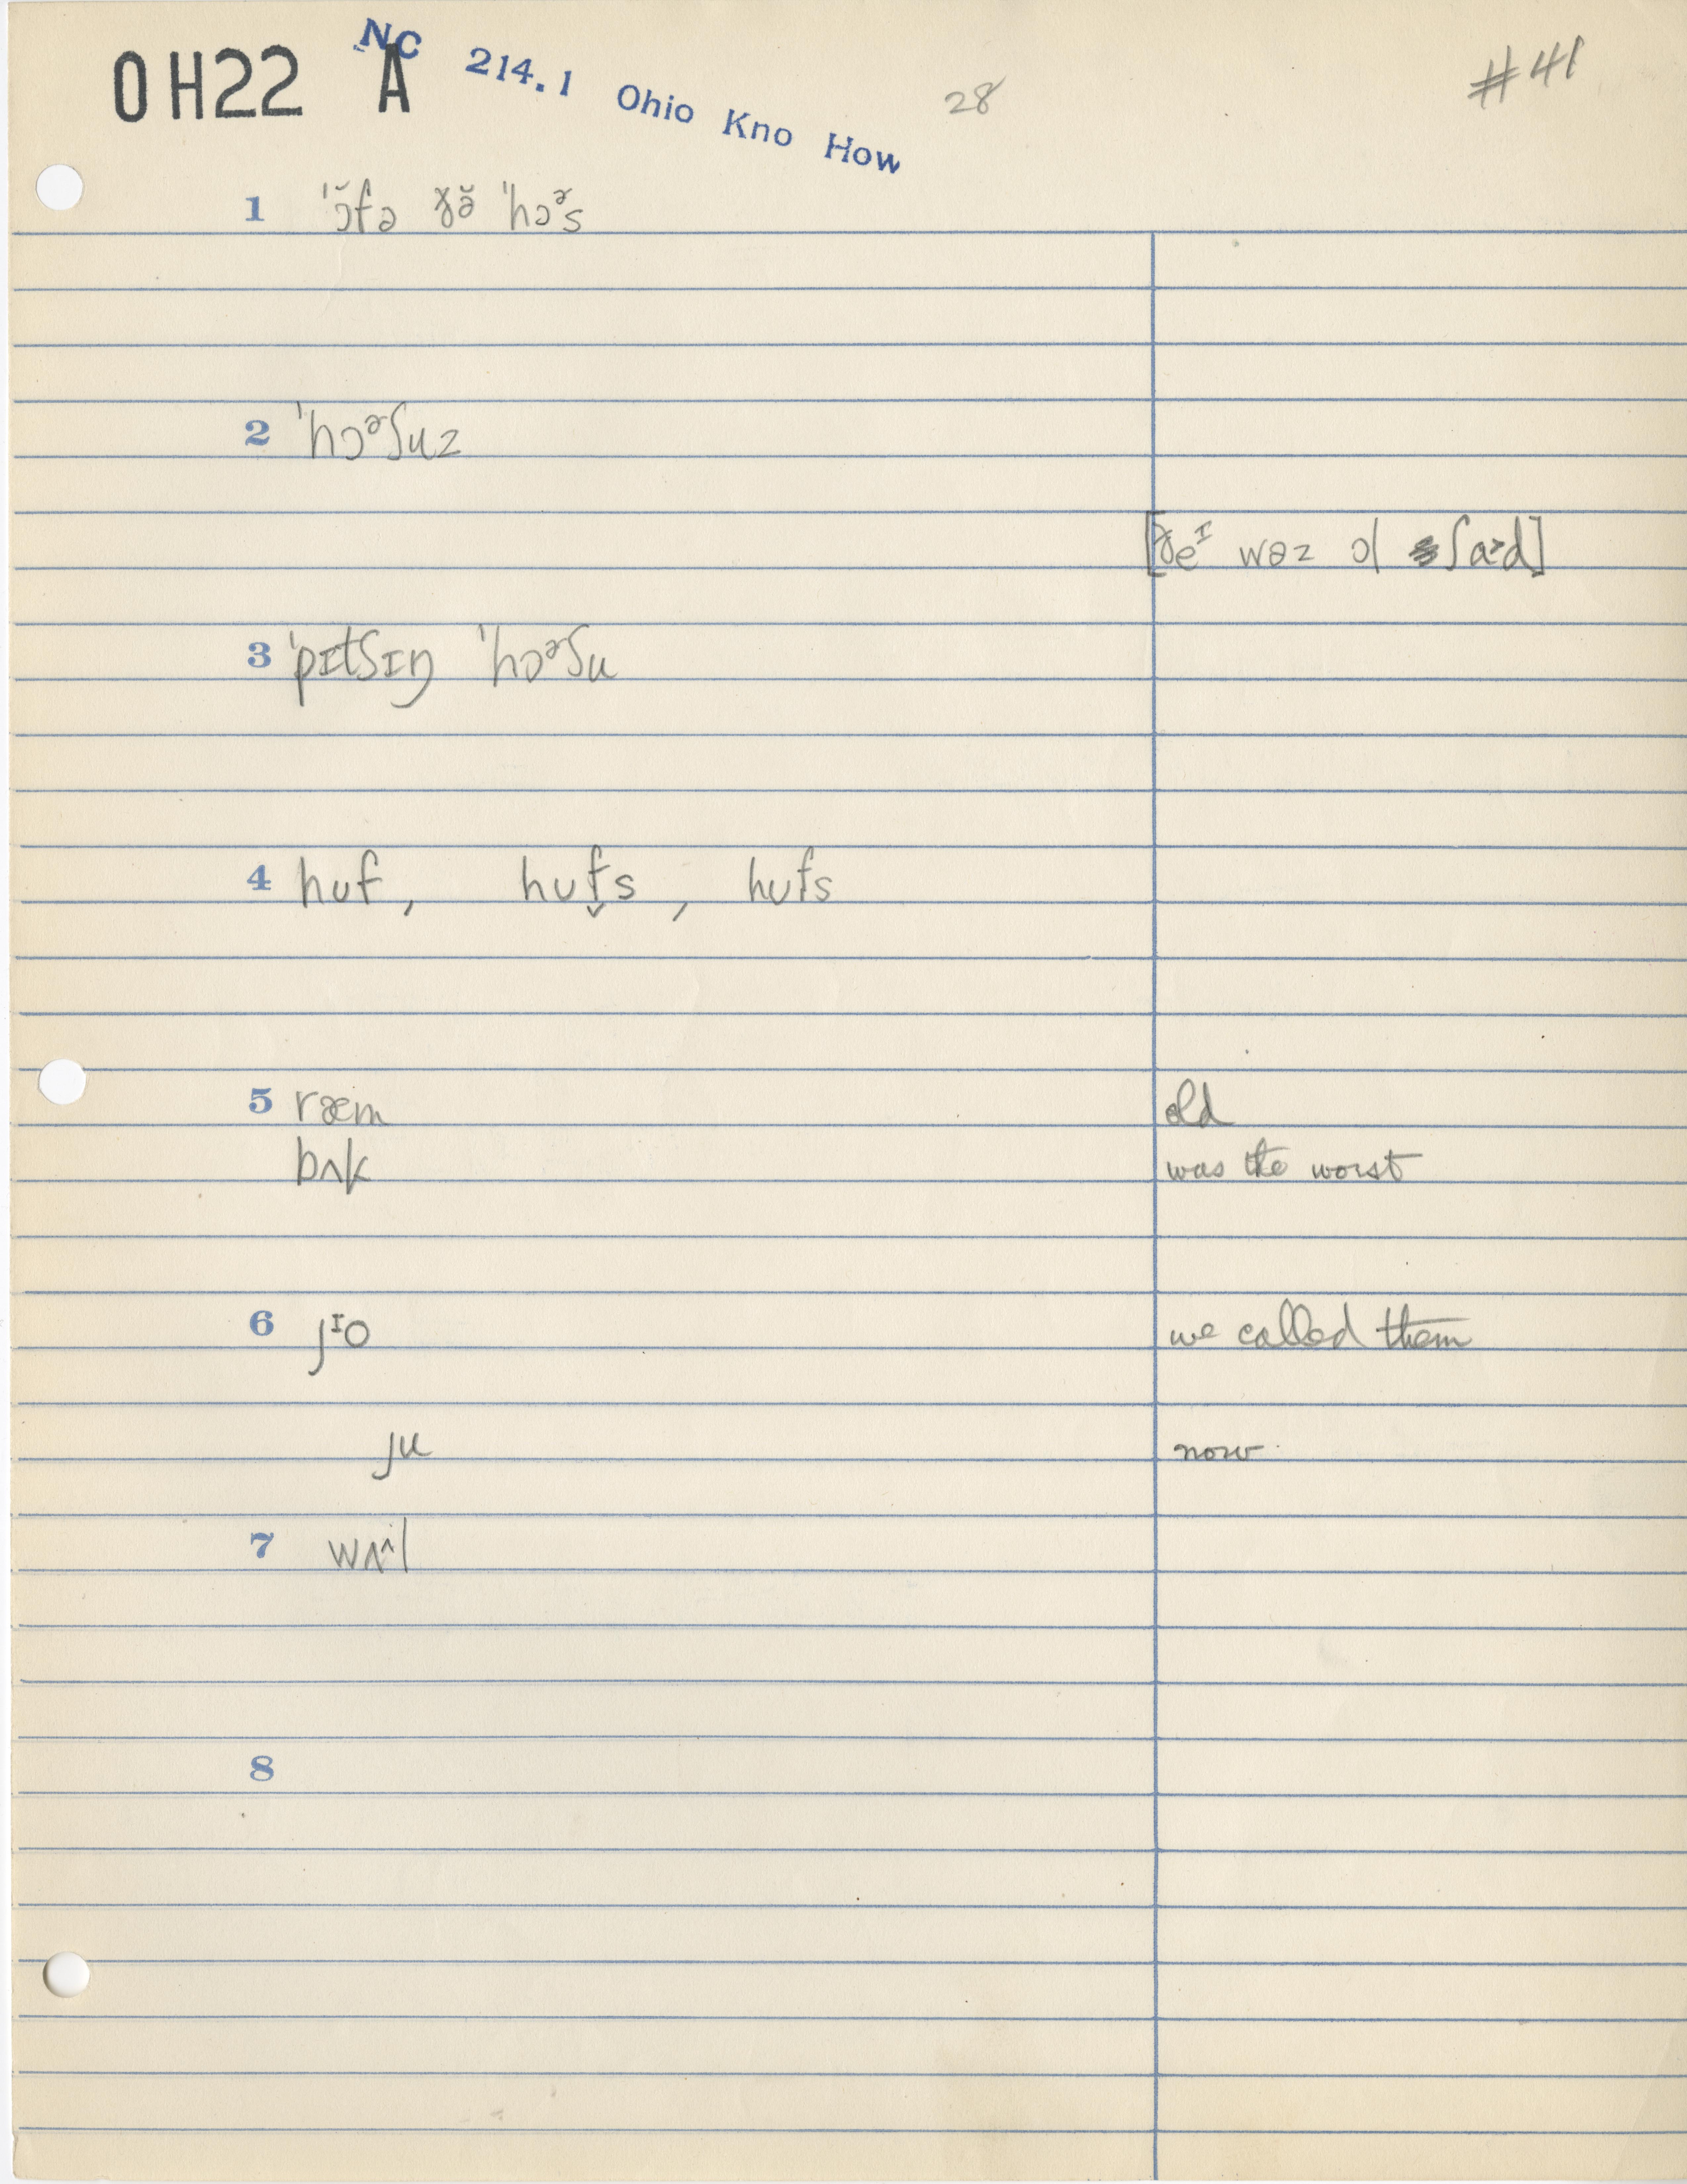 OH22 A NC 214.1 Ohio Kno How 28 #41
1 ˈɔ̆fə ðə̆ ˈhɔᵊ˞s
2 ˈhɔᵊ˞ʃuz
[ðeᴵ wəz ɔl ʃɑ˞d]
3 ˈpɪtʃɪŋ ˈhɔᵊ˞ʃu
4 hʊf, hʊf̬s, hʊfs
5 ræm old
bʌk was the worst
6 jᴵo we called them
ju now
7
8